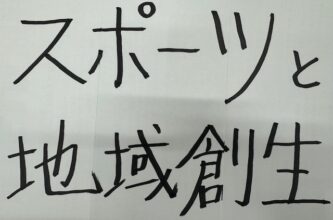 スポーツと
地域創生